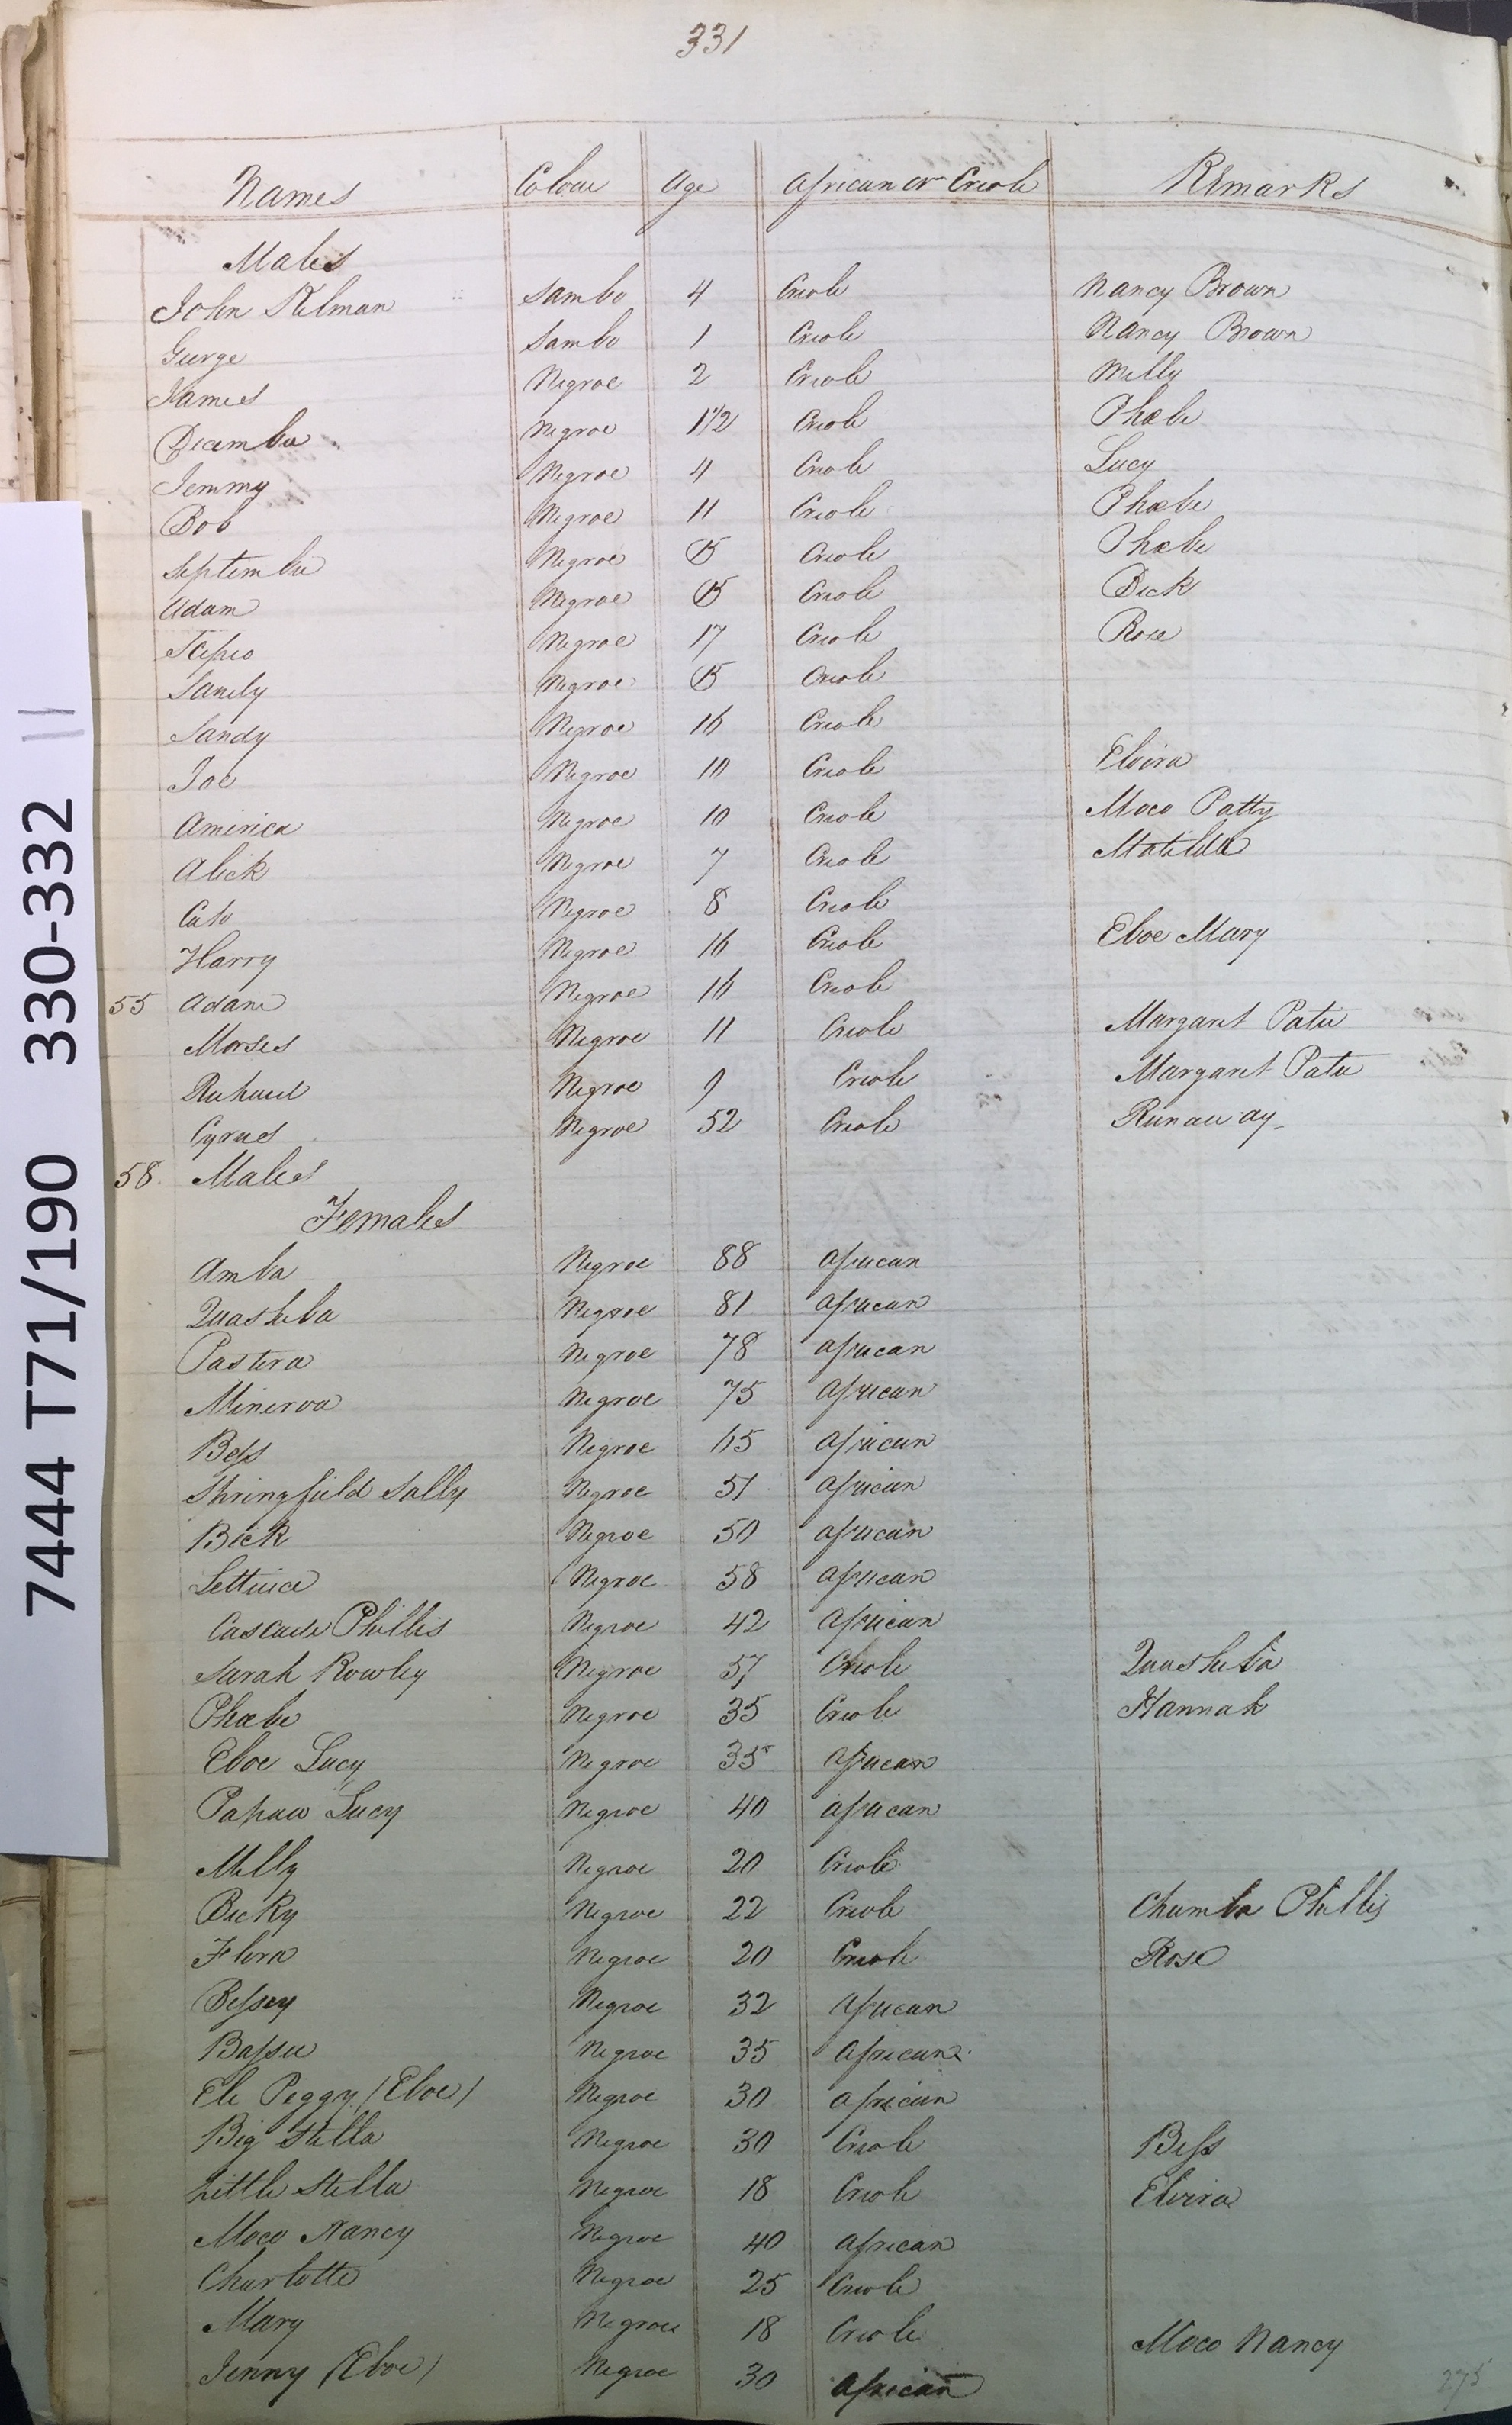 331
Names Colour Age African or Creole Remarks
Males
John Kelman Sambo 4 Creole Nancy Brown
George Sambo 1 Creole Nancy Brown
James Negroe 2 Creole Milly
Decembr Negroe 1 1/2 Creole Phœbe
Jemmy Negroe 4 Creole Lucy
Bob Negroe 11 Creole Phœbe
September Negroe 15 Creole Phœbe
Adam Negroe 15 Creole Dick
Scipio Negroe 17 Creole Rose
Sandy Negroe 15 Creole
Sandy Negroe 16 Creole
Joe Negroe 10 Creole Elvira
America Negroe 10 Creole Moco Patty
Alick Negroe 7 Creole Matilda
Cato Negroe 8 Creole
Harry Negroe 16 Creole Eboe Mary
55 Adam Negroe 16 Creole
Morses Negroe 11 Creole Margaret Pate
Richard Negroe 9 Creole Margaret Pate
Cyrus Negroe 52 Creole Runaway.
58. Males
Females
Amba Negroe 88 African
Quasheba Negroe 81 African
Pastora Negroe 78 African
Minerva Negroe 75 African
Bess Negroe 65 African
Springfield Sally Negroe 51 African
Beck Negroe 50 African
Lettuice Negroe 58 African
Cascade Phillis Negroe 42 African
Sarah Rowley Negroe 57 Creole Quasheba
Phœbe Negroe 35 Creole Hannah
Eboe Lucy Negroe 35 African
Papaw Lucy Negroe 40 African
Milly Negroe 20 Creole
Becky Negroe 22 Creole Chamba Phillis
Flora Negroe 20 Creole Rose
Bessey Negroe 32 African
Bassee Negroe 35 African
Ele Peggy (Eboe) Negroe 30 African
Big Stella Negroe 30 Creole Bess
Little Stella Negroe 18 Creole Elvira
Moco Nancy Negroe 40 African
Charlotte Negroe 25 Creole
Mary Negroe 18 Creole Moco Nancy
Jenny (Eboe) Negroe 30 African
275
7444 T71/190 330-332 11